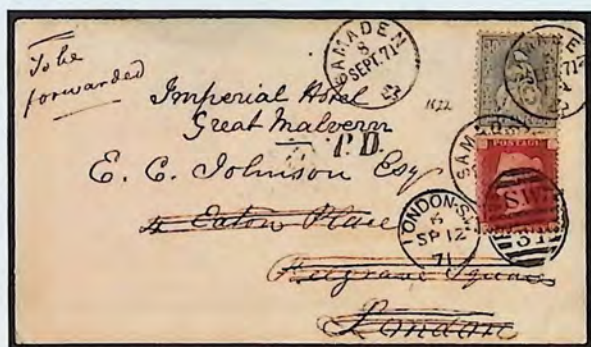 To be
forwarded
SAMADEN
8
SEPT. 71
Imperial Hotel
Great Malvern
P.D.
E. C. Johnson Esq
4 Eaton Place
Belgrave Square
London
POSTAGE
LONDON-S.W
6
SP 12
71